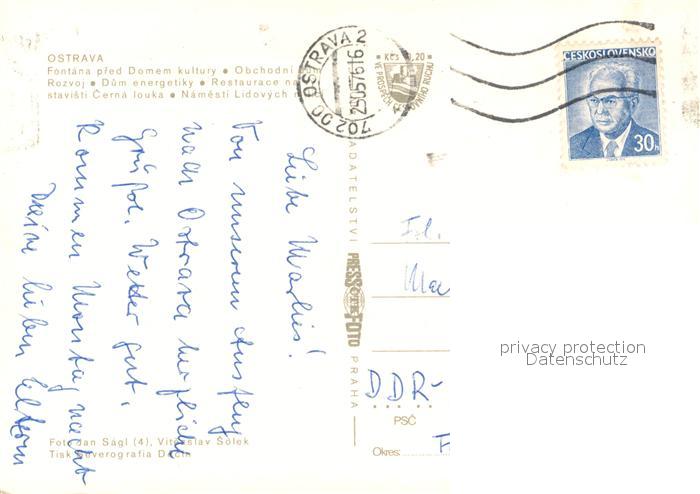 OSTRAVA
Fontána před Domem kultury • Obchodní
Rozvoj • Dům energetiky • Restaurace na
stavišti Černá louka • Náměstí Lidových
702 00 OSTRAVA 2
25.05.76.-16
Kčs 0,20
VE PROSPĚCH
ČESKOSLOVENSKO
30h
Liebe Marlies!
Von unserem Ausflug
nach Ostrava herzliche
Grüße. Wetter gut.
Kommen Montag nacht
Deine lieben Eltern
NAKLADATELSTVÍ
PRESSFOTO
PRAHA
Frl.
Mar
DDR-
PSČ
Okres:
Foto Jan Ságl (4), Vítězslav Šolek
Tisk Severografia Děčín
privacy protection
Datenschutz